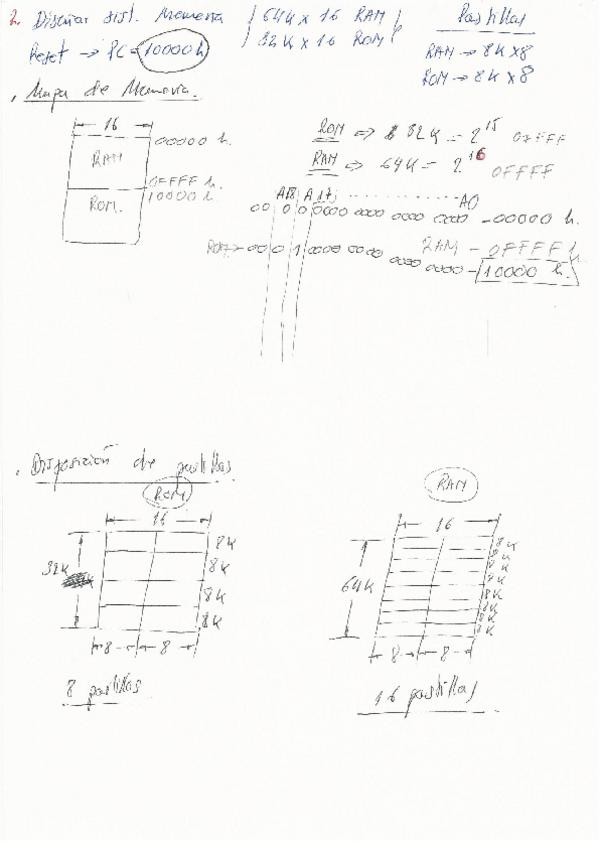 2. Diseñar sist. Memoria / 64K x 16 RAM / Pastillas
/ 32K x 16 ROM /
Reset → PC = 10000h RAM → 8K x 8
ROM → 8K x 8
. Mapa de Memoria.
16
00000 h.
RAM
0FFFF h.
10000 h
ROM.
ROM => 32K = 2^15 07FFF
RAM => 64K = 2^16 0FFFF
A18 A17 ............ A0
00 0 0 0000 0000 0000 0000 - 00000 h.
RAM - 0FFFF h
ROM - 00 0 1 0000 0000 0000 0000 - 10000 h.
. Disposición de pastillas.
ROM
16
32K
8K
8K
8K
8K
8 8
8 pastillas
RAM
16
64K
8K
8K
8K
8K
8K
8K
8K
8K
8 8
16 pastillas